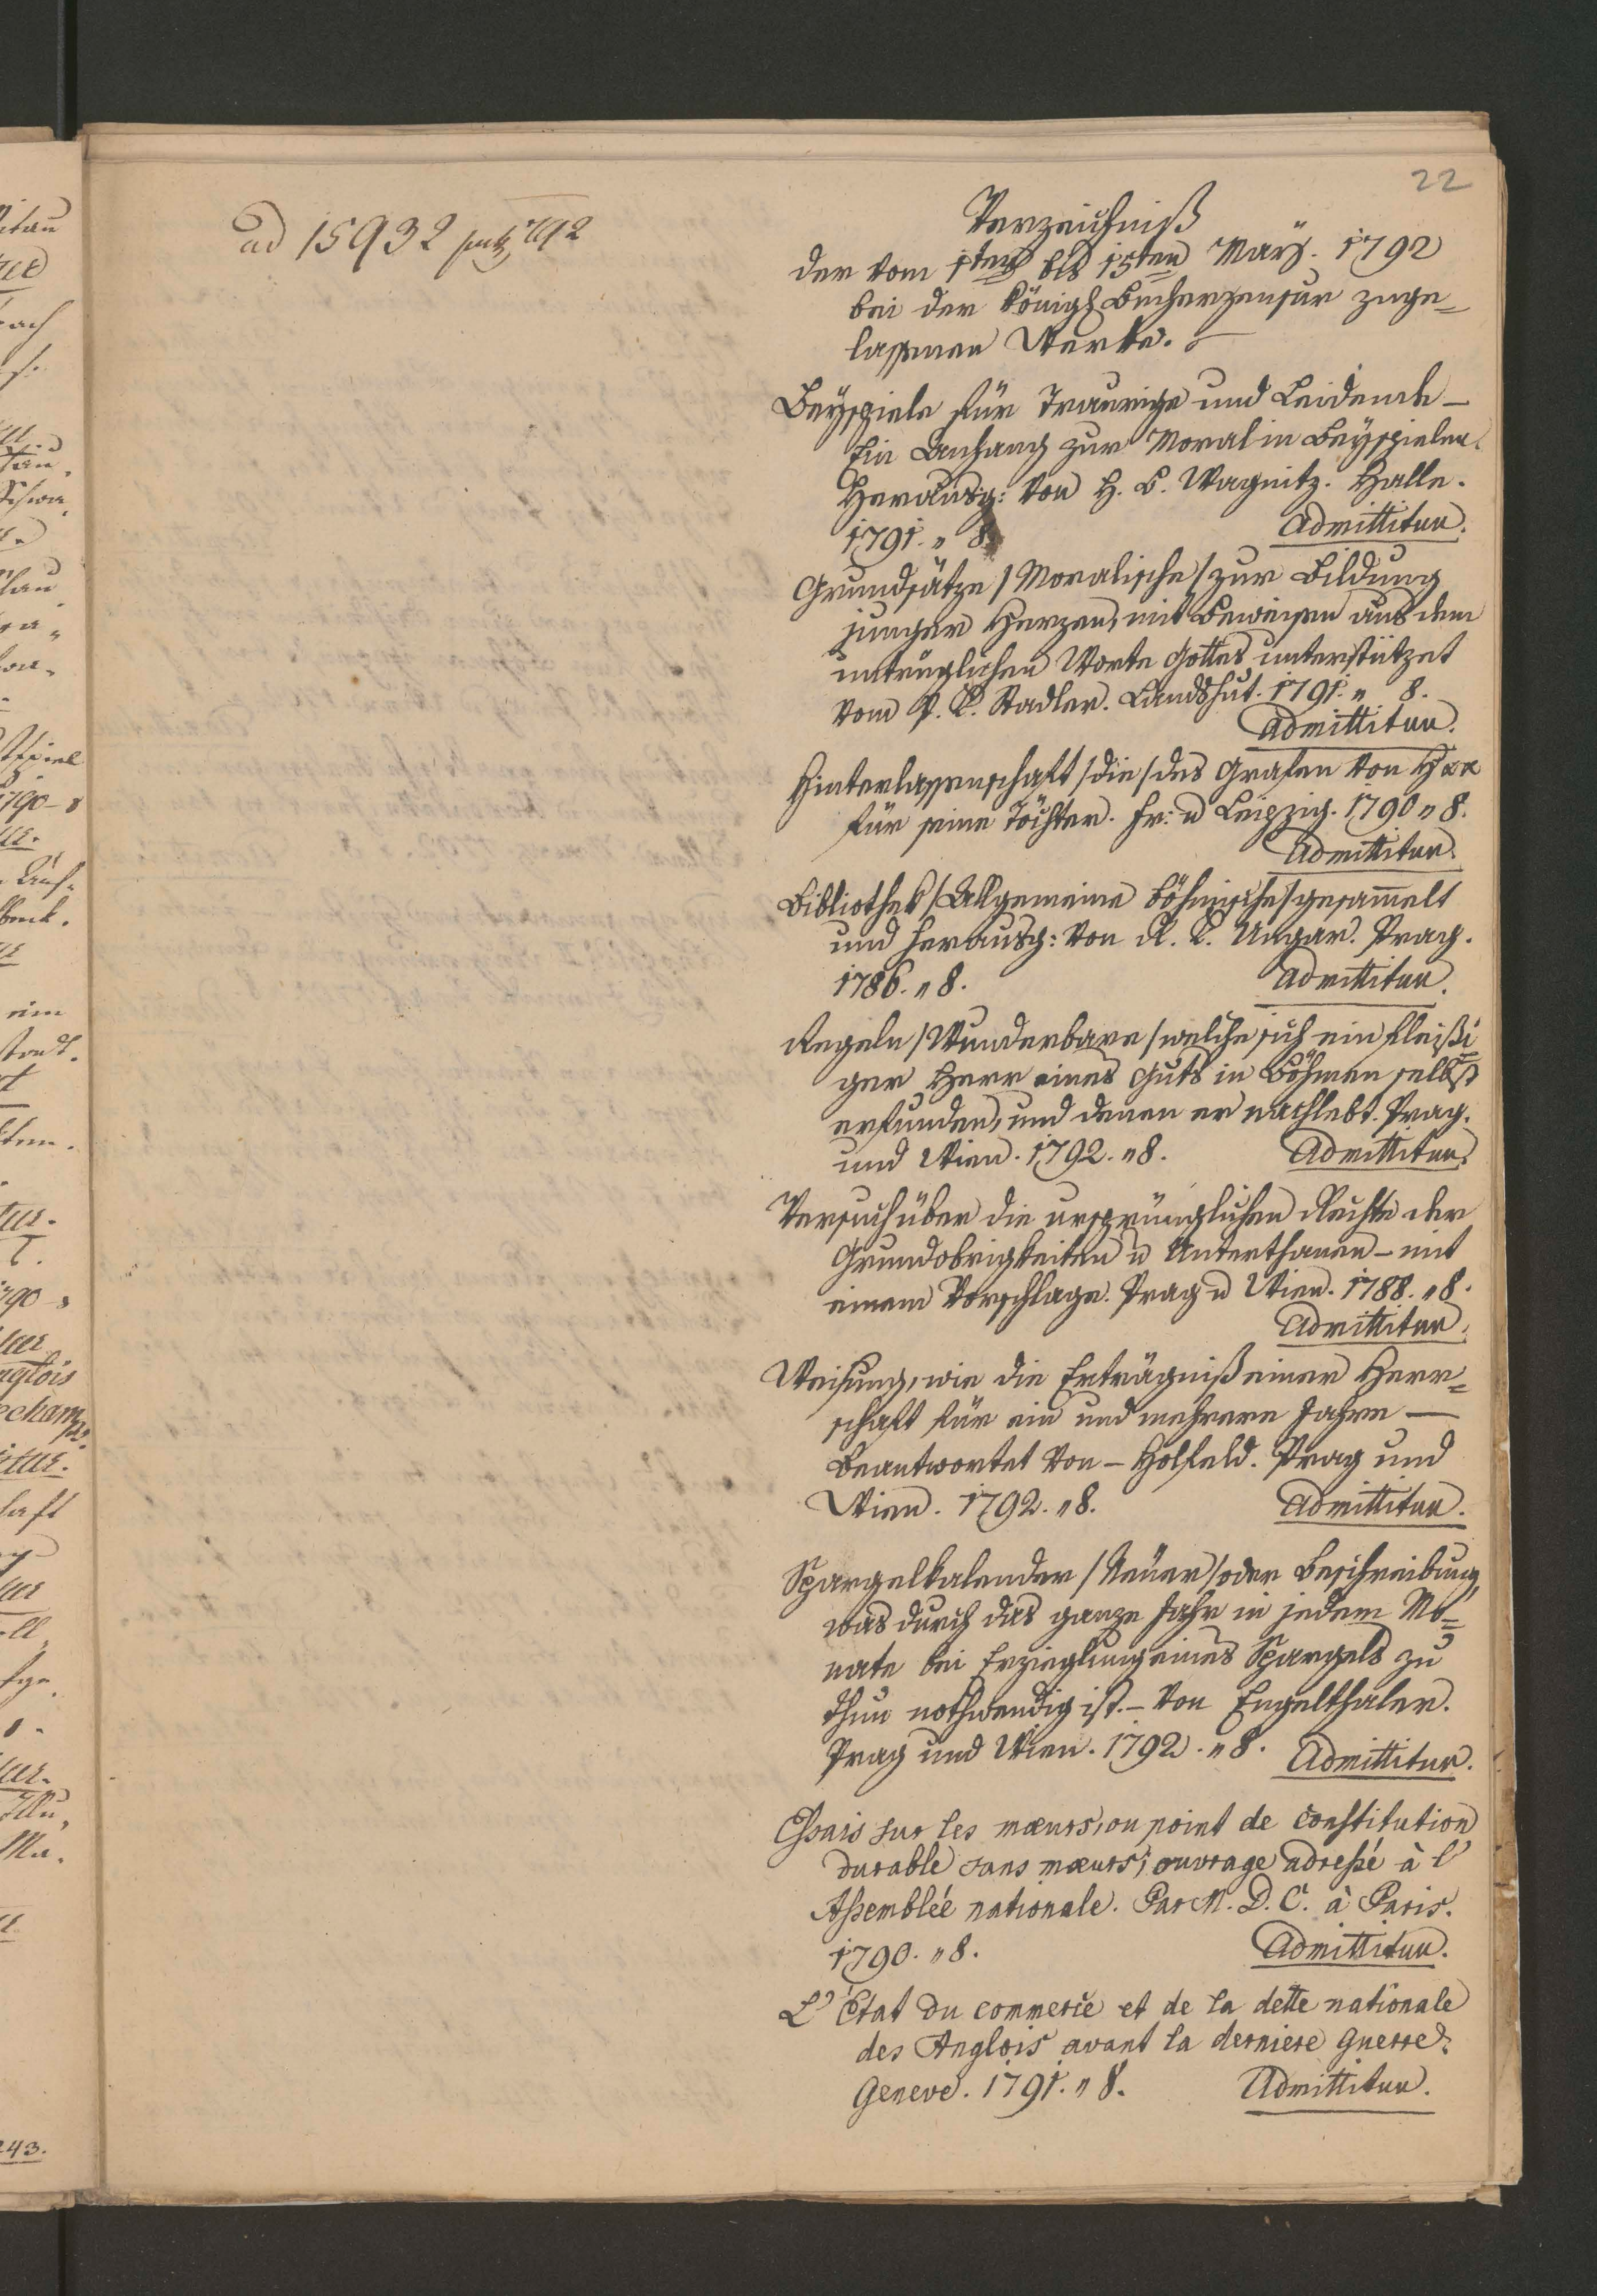 22
ad 15932 792
Verzeichniß
der vom 1ten bis 15ten März. 1792
bei der königl Bücherzensur zuge=
lassenen Werke.
Beyspiele für Traurige und Leidende –
Ein Anhang zur Moral in Beyspielen.
Herausg: von H. B. Wagnitz. Halle.
1791. " 8. Admittitur.
Grundsätze / Moralische / zur Bildung
junger Herzen, mit Beweisen aus dem
untrüglichen Worte Gottes unterstützet
vom P. Stadler. Landshut. 1791. " 8.
Admittitur.
Hinterlassenschaft / die / des Grafen von H xx
für seine Töchter. Fr: u Leipzig. 1790 " 8.
Admittitur.
Bibliothek / Allgemeine böhmische / gesam̄elt
und herausg: von R. Ungar. Prag.
1786. " 8. Admittitur.
Regeln / Wunderbare / welche sich ein fleißi
ger Herr eines Guts in Böhmen selbst
erfunden, und denen er nachlebt. Prag.
und Wien. 1792. " 8. Admittitur.
Versuch über die ursprünglichen Rechte der
Grundobrigkeiten u Unterthanen – mit
einem Vorschlage. Prag u Wien. 1788. " 8.
Admittitur.
Weisung, wie die Erträgniß einer Herr=
schaft für ein und mehrere Jahre –
Beantwortet von – Holfeld. Prag und
Wien. 1792. " 8. Admittitur.
Spargelkalender / Neuer / oder Beschreibung,
was durch das ganze Jahr in jedem Mo=
nate bei Erzieglung eines Spargels zu
thun nothwendig ist. – von Engelthaler.
Prag und Wien. 1792. " 8. Admittitur.
Essais sur les mœurs, ou point de constitution
durable sans mœurs; ouvrage adressé à l'
Assemblée nationale. Par M. D. C. à Paris.
1790. " 8. Admittitur.
L' État du commerce et de la dette nationale
des Anglois avant la derniere guerre.
Geneve. 1791. " 8. Admittitur.